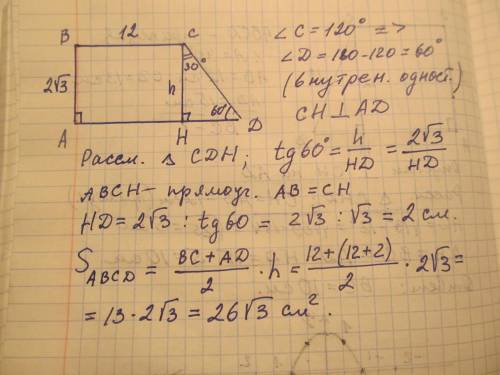 B 12 C
∠C = 120° =>
∠D = 180 - 120 = 60°
(внутрен. одност.)
CH ⊥ AD
30°
2√3
h
60°
A H D
Рассм. △ CDH; tg60° = h/HD = 2√3/HD
ABCH - прямоуг. AB = CH
HD = 2√3 : tg60 = 2√3 : √3 = 2 см.
S ABCD = (BC + AD)/2 · h = (12 + (12+2))/2 · 2√3 =
= 13 · 2√3 = 26√3 см².